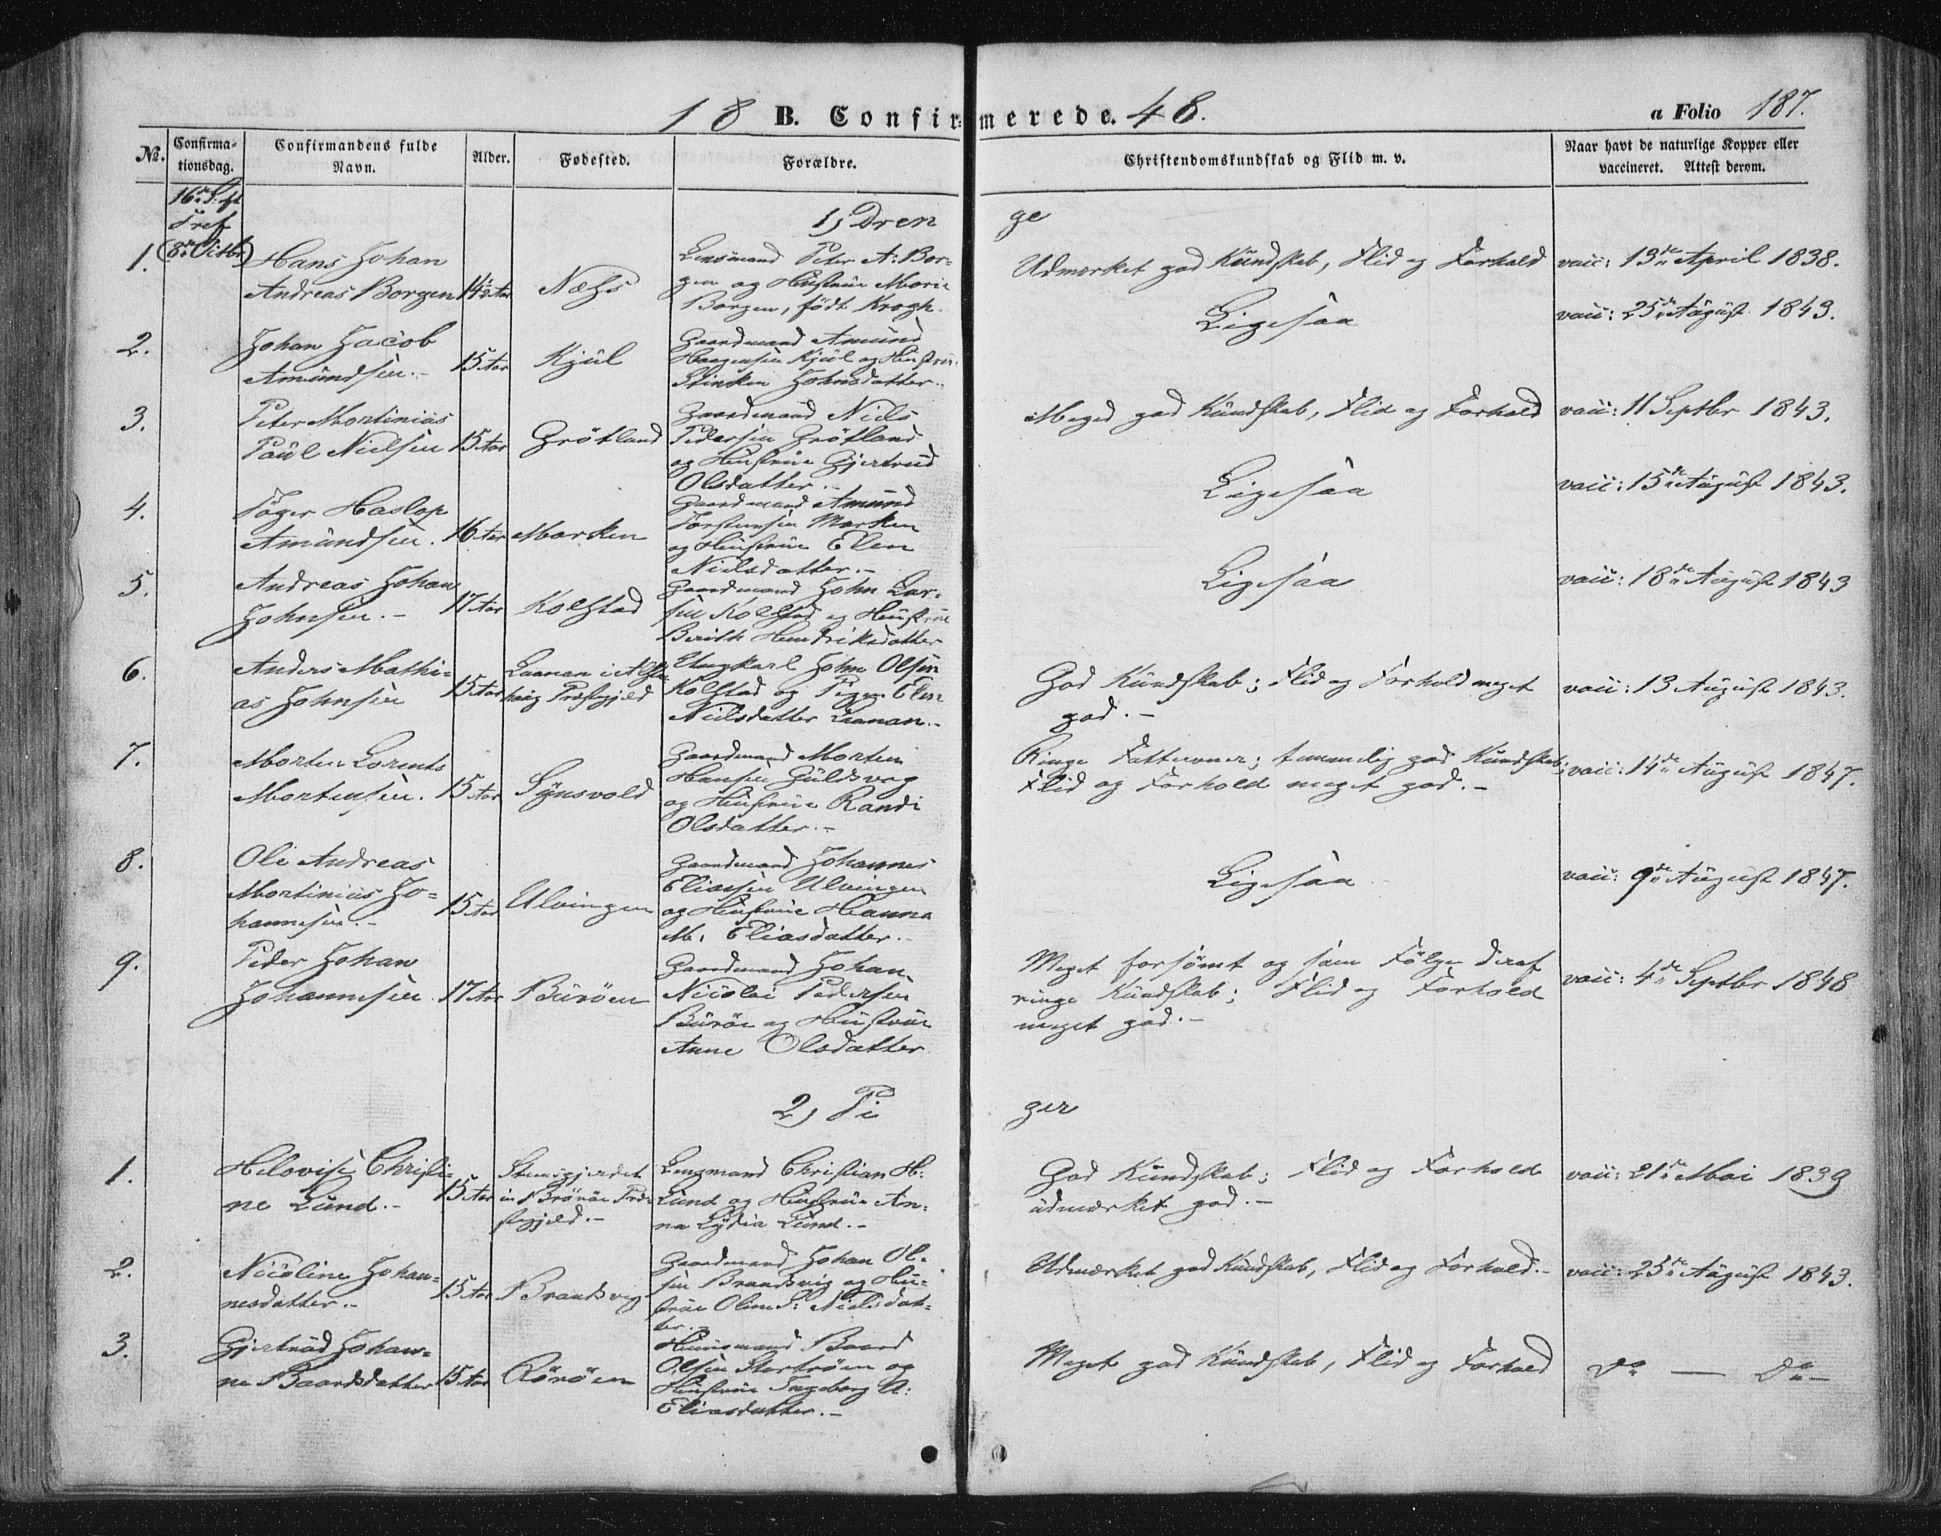 18 B. Confirmerede. 48.
a Folio 187.
No.
Confirma-
tionsdag.
Confirmandens fulde
Navn.
Alder.
Fødested.
Forældre.
Christendomskundskab og Flid m. v.
Naar havt de naturlige Kopper eller
vaccineret. Attest derom.
16de S. ft
Tref
(8de Octbr)
1) Dren
ge
1.
Hans Johan
Andreas Borgen
14½ Aar
Næss
Lensmand Peter A: Bor-
gen og Hustrue Marie
Borgen, født Krogh.
Udmærket god Kundskab, Flid og Forhold
vacc: 13de April 1838.
2.
Johan Jacob
Amundsen.-
15 Aar
Kjul
Gaardmand Amund
Haagensen Kjul og Hustrue
Stinken Johnsdatter.-
Ligesaa
vacc: 25de August 1843.
3.
Peter Martinius
Paul Nielsen
15 Aar
Grötland
Gaardmand Niels
Pedersen Grötland
og Hustrue Gjertrud
Olsdatter.-
Meget god Kundskab, Flid og Forhold
vacc: 11 Septbr 1843.
4.
Jöger Haslop
Amundsen.
16 Aar
Marken
Gaardmand Amund
Torstensen Marken
og Hustrue Elen
Nielsdatter.-
Ligesaa
vacc: 15de August 1843.
5.
Andreas Johan
Johnsen.-
17 Aar
Kolstad
Gaardmand John Lar-
sen Kolstad og Hustrue
Berith Hendriksdatter
Ligesaa
vacc: 18de August 1843
6.
Anders Mathi-
as Johnsen
15 Aar
Laanan i Alsta-
haug Præstegjeld
Ungkarl John Olsen
Kolstad og Pigen Elen
Nielsdatter Laanan.-
God Kundskab; Flid og Forhold meget
god.-
vacc: 13 August 1843.
7.
Morten Lorents
Mortensen.
15 Aar
Synsvold
Gaardmand Morten
Hansen Guldsvog
og Hustrue Randi
Olsdatter.-
Ringe Fatteevner; temmelig god Kundskab;
Flid og Forhold meget god.-
vacc: 14de August 1847.
8.
Ole Andreas
Martinius Jo-
hannesen.-
15 Aar
Ulvingen
Gaardmand Johannes
Eliassen Ulvingen
og Hustrue Hanna
M: Eliasdatter.-
Ligesaa
vacc: 9de August 1847.
9.
Peder Johan
Johannesen
17 Aar
Buröen
Gaardmand Johan
Nicolai Pedersen
Buröe og Hustrue
Anne Olsdatter
Meget forsömt og som Fölge deraf
ringe Kundskab; Flid og Forhold
meget god.-
vacc: 4de Septbr 1848
2) Pi
ger
1.
Helovise Christi-
ne Lund.-
15 Aar
Steensgjerdet
i Brönöe Præ-
stegjeld.-
Lensmand Christian H:
Lund og Hustrue An-
na Lydia Lund.-
God Kundskab; Flid og Forhold
udmærket god.-
vacc: 21de Mai 1839
2.
Nicoline Johan-
nesdatter.-
15 Aar
Brandsvig
Gaardmand Johan Ol-
sen Brandsvig og Hu-
strue Oline S: Nielsdat-
ter.-
Udmærket god Kundskab, Flid og Forhold.-
vacc: 25de August 1843.
3.
Gjertrud Johan-
ne Baardsdatter
15 Aar
Röröen
Huusmand Baard
Olsen og
Hustrue Ingeborg A:
Eliasdatter.-
Meget god Kundskab, Flid og Forhold
do — do-